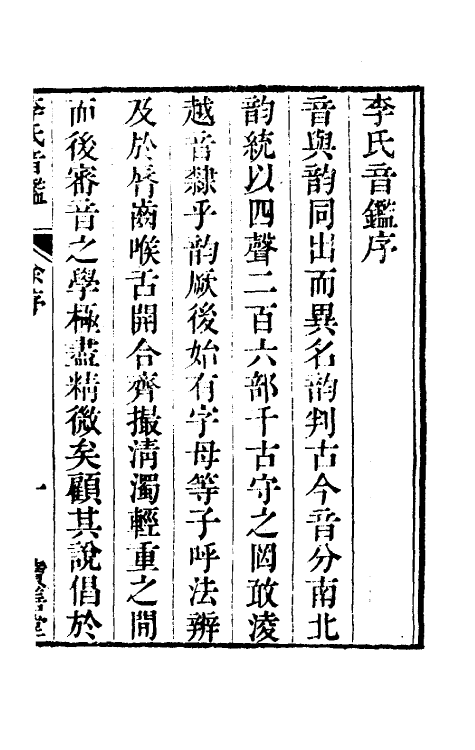 李氏音鑑序
音與韵同出而異名韵判古今音分南北
韵統以四聲二百六部千古守之罔敢淩
越音隸乎韵厥後始有字母等子呼法辨
及於脣齒喉舌開合齊撮淸濁輕重之間
而後審音之學極盡精微矣顧其說倡於
李氏音鑑
余序
一
寶善堂